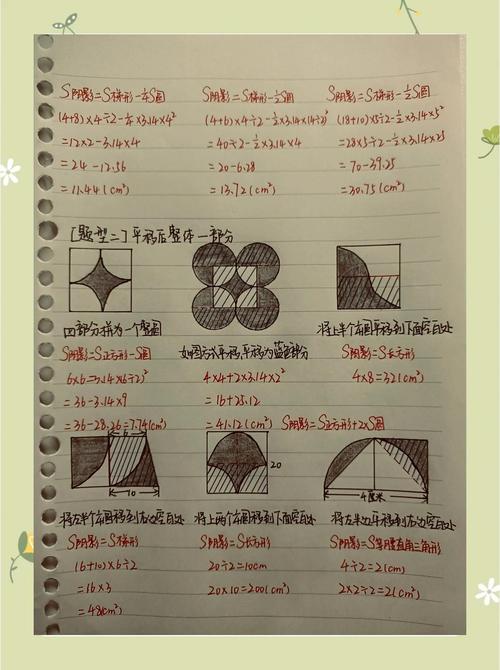 S阴影=S梯形-¼S圆
S阴影=S梯形-½S圆
S阴影=S梯形-½S圆
(4+8)×4÷2-¼×3.14×4²
(4+6)×4÷2-½×3.14×(4÷2)²
(18+10)×5÷2-½×3.14×5²
=12×2-3.14×4
=40÷2-½×3.14×4
=28×5÷2-½×3.14×25
=24-12.56
=20-6.28
=70-39.25
=11.44(cm²)
=13.72(cm²)
=30.75(cm²)
[题型二]平移后整体一部分
四部分拼为一个整圆
如图方式平移,平移为蓝色部分
将上半个圆平移到下面空白处
S阴影=S正方形-S圆
S阴影=S长方形
6×6-3.14×(6÷2)²
4×4+2×3.14×2²
4×8=32(cm²)
=36-3.14×9
=16+25.12
=36-28.26=7.74(cm²)
=41.12(cm²)
S阴影=S正方形+2×S圆
6
10
20
4厘米
将左半个圆移到右边空白处
将上两个圆移到下面空白处
将左半边平移到右边空白处
S阴影=S梯形
S阴影=S长方形
S阴影=S等腰直角三角形
(6+10)×6÷2
20÷2=10cm
4÷2=2(cm)
=16×3
20×10=200(cm²)
2×2÷2=2(cm²)
=48(cm²)